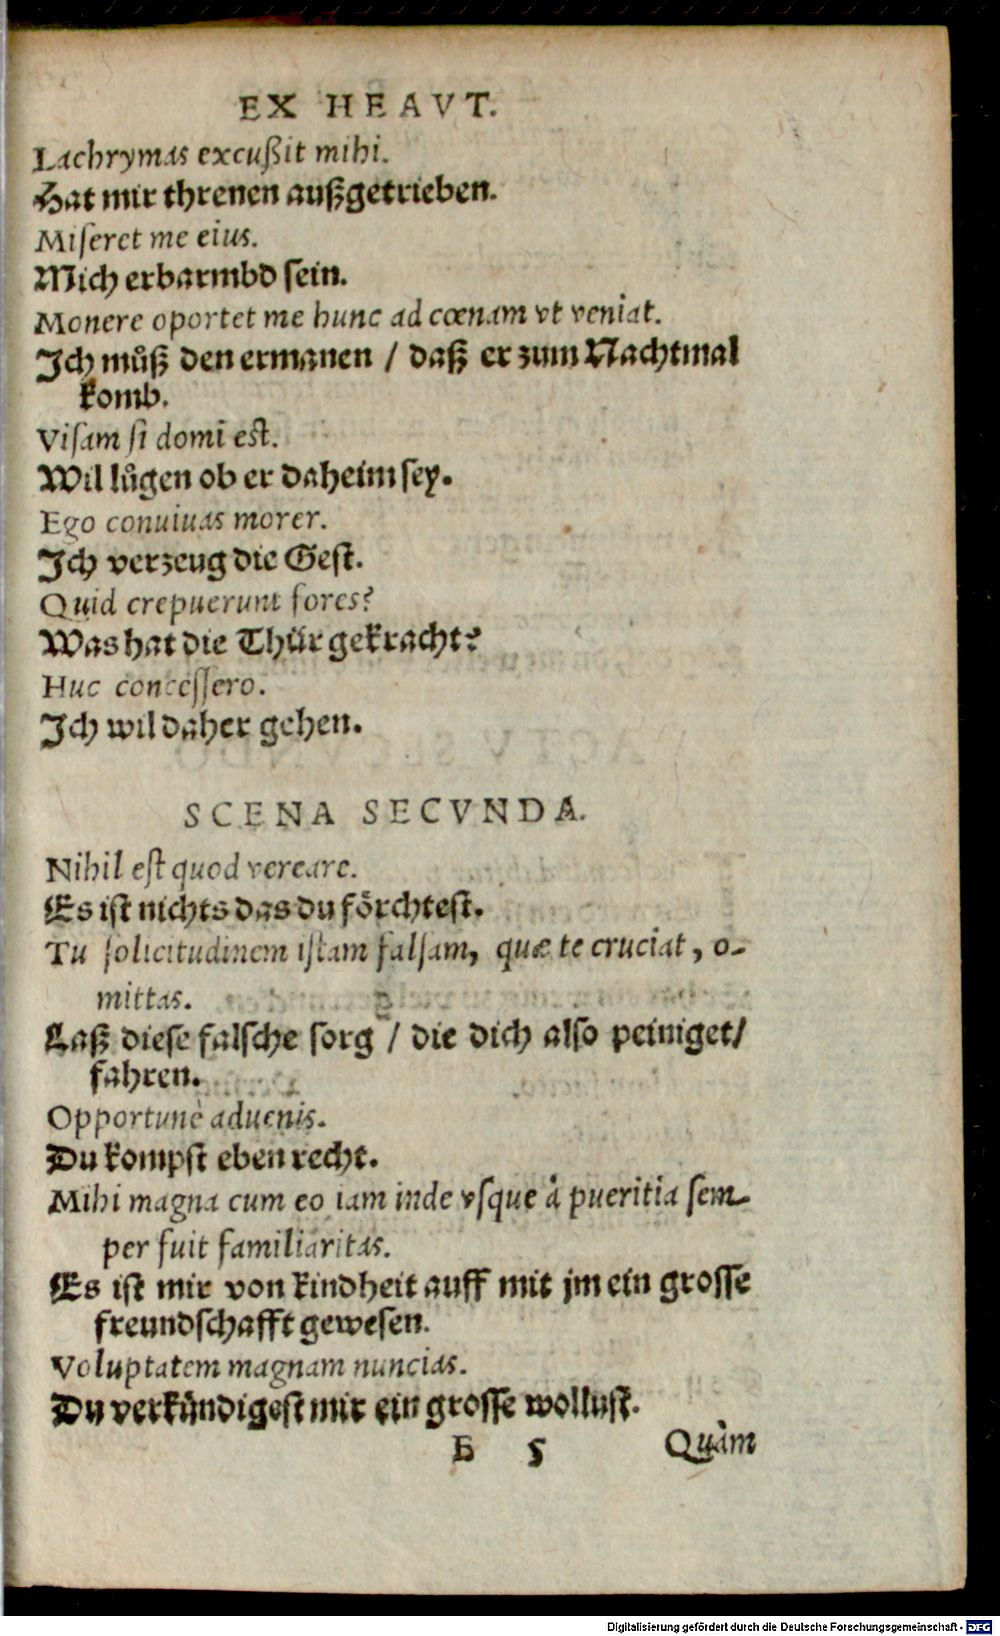 EX HEAVT.
Lachrymas excußit mihi.
Hat mir threnen außgetrieben.
Miſeret me eius.
Mich erbarmbd ſein.
Monere oportet me hunc ad cœnam vt veniat.
Ich můß den ermanen / daß er zum Nachtmal
komb.
Viſam ſi domi eſt.
Wil lůgen ob er daheim ſey.
Ego conuiuas morer.
Ich verzeug die Geſt.
Quid crepuerunt fores?
Was hat die Thür gekracht?
Huc conceſſero.
Ich wil daher gehen.
SCENA SECVNDA.
Nihil eſt quod vereare.
Es iſt nichts das du förchteſt.
Tu ſolicitudinem iſtam falſam, quæ te cruciat, o-
mittas.
Laß dieſe falſche ſorg / die dich alſo peiniget/
fahren.
Opportunè aduenis.
Du kompſt eben recht.
Mihi magna cum eo iam inde vſque à pueritia ſem-
per fuit familiaritas.
Es iſt mir von kindheit auff mit jm ein groſſe
freundſchafft geweſen.
Voluptatem magnam nuncias.
Du verkündigeſt mir ein groſſe wolluſt.
B 5 Quàm
Digitalisierung gefördert durch die Deutsche Forschungsgemeinschaft - DFG